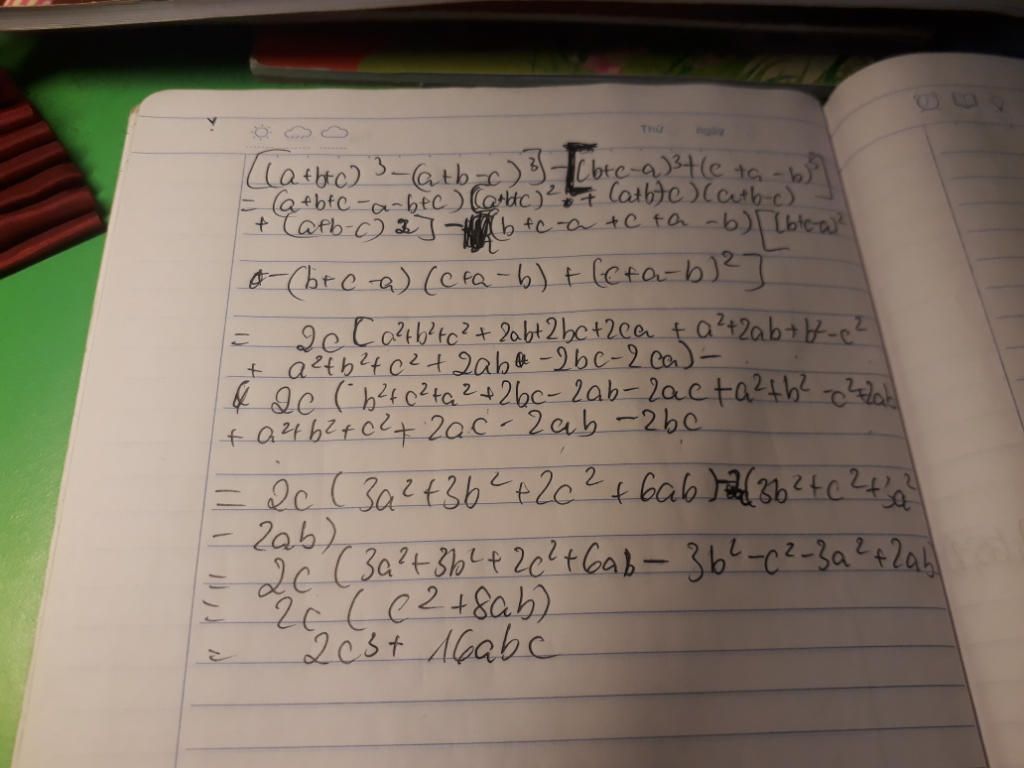 Thứ ngày
[(a+b+c)³ - (a+b-c)³] - [(b+c-a)³+(c+a-b)³]
= (a+b+c-a-b+c) [(a+b+c)² + (a+b+c)(a+b-c)
+ (a+b-c)2] - (b+c-a+c+a-b) [(b+c-a)²
- (b+c-a)(c+a-b) + (c+a-b)²]
= 2c [a²+b²+c²+2ab+2bc+2ca + a²+2ab+b²-c²
+ a²+b²+c²+2ab -2bc-2ca) -
2c (b²+c²+a²+2bc-2ab-2ac+a²+b²-c²+2ab
+ a²+b²+c²+2ac-2ab-2bc
= 2c (3a²+3b²+2c²+6ab)-2(3b²+c²+3a²
- 2ab)
= 2c (3a²+3b²+2c²+6ab-3b²-c²-3a²+2ab
= 2c (c²+8ab)
= 2c3+ 16abc